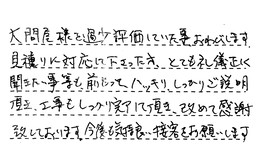 大問屋様を過少評価していた事おわびします
見積りに対応に下さった方、とても礼儀正しく
聞きたい事等も前もって、ハッキリ、しっかりご説明
頂き、工事もしっかり完了して頂き、改めて感謝
致しております。今後も気持良い接客をお願いします